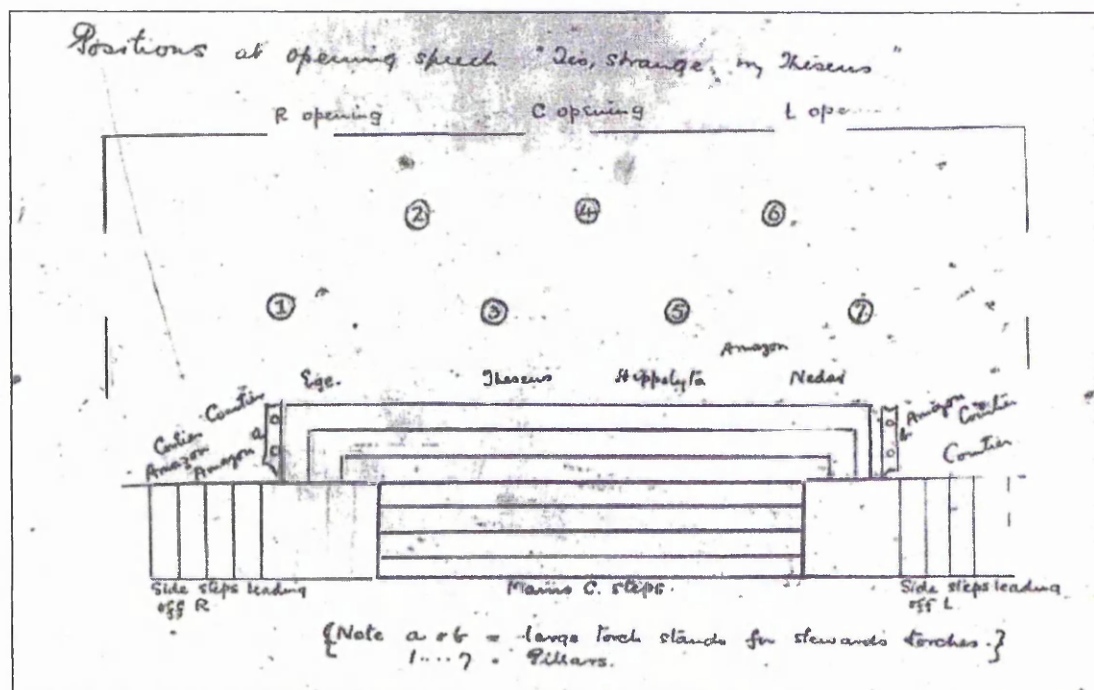 Positions at opening speech "Tis, strange, my Theseus"
R opening C opening L ope
2 4 6
1 3 5 7
Amazon
Ege. Theseus Hippolyta Nedar
Courtier Amazon
Courtier a b Courtier
Amazon Amazon Courtier
Side steps leading Main C. steps. Side steps leading
off R off L
{Note a & b = large torch stands for stewards torches.}
1....7 = Pillars.